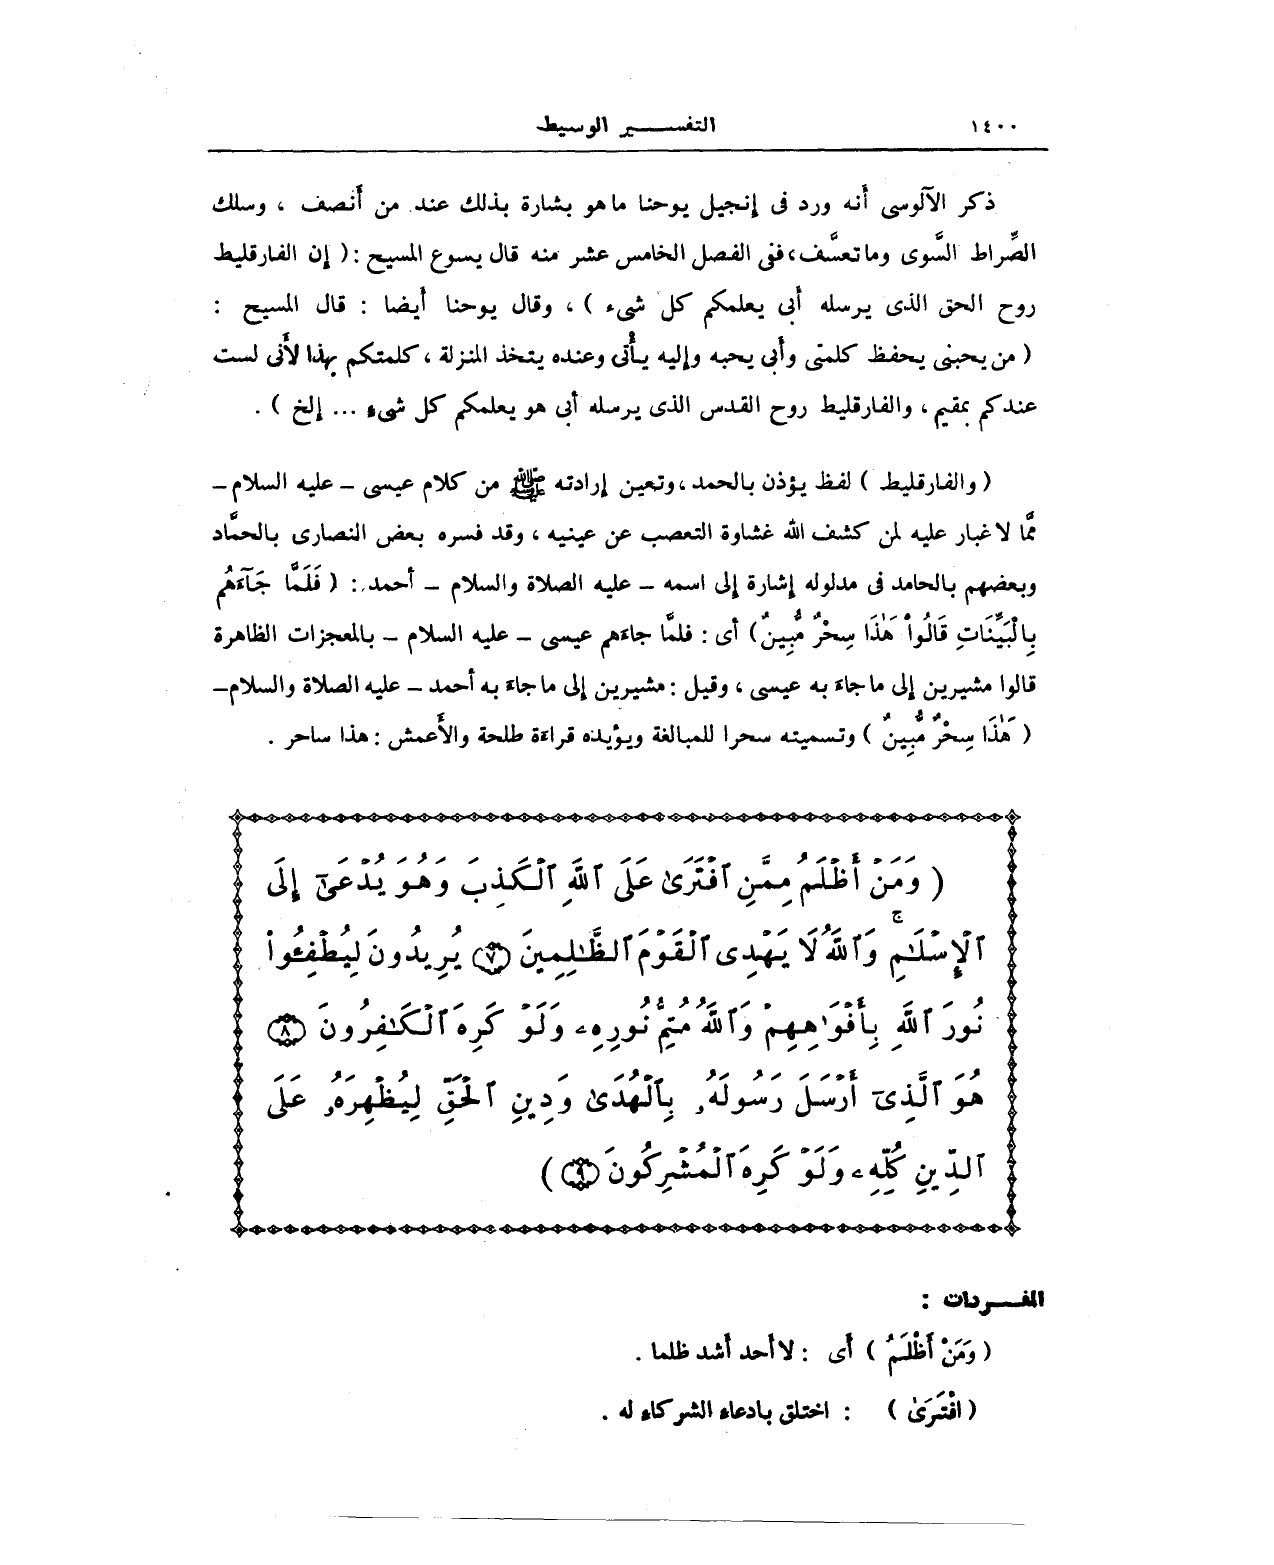 ١٤٠٠
التفسـير الوسيط
ذكر الآلوسى أنه ورد فى إنجيل يوحنا ما هو بشارة بذلك عند من أنصف ، وسلك
الصِّراط السَّوى وما تعسَّف، ففى الفصل الخامس عشر منه قال يسوع المسيح :( إن الفارقليط
روح الحق الذى يرسله أبى يعلمكم كل شىء ) ، وقال يوحنا أيضا : قال المسيح :
( من يحبنى يحفظ كلمتى وأبى يحبه وإليه يأْتى وعنده يتخذ المنزلة ، كلمتكم بهذا لأَنى لست
عندكم بمقيم ، والفارقليط روح القدس الذى يرسله أبى هو يعلمكم كل شىء ... إلخ ) .
( والفارقليط ) لفظ يؤذن بالحمد ، وتعين إرادته ﷺ من كلام عيسى – عليه السلام –
ممَّا لا غبار عليه لمن كشف الله غشاوة التعصب عن عينيه ، وقد فسره بعض النصارى بالحمَّاد
وبعضهم بالحامد فى مدلوله إشارة إلى اسمه – عليه الصلاة والسلام – أحمد : ( فَلَمَّا جَآءَهُم
بِالْبَيِّنَاتِ قَالُواْ هَٰذَا سِحْرٌ مُّبِينٌ ) أى : فلمَّا جاءهم عيسى – عليه السلام – بالمعجزات الظاهرة
قالوا مشيرين إلى ما جاءَ به عيسى ، وقيل : مشيرين إلى ما جاءَ به أحمد – عليه الصلاة والسلام –
( هَٰذَا سِحْرٌ مُّبِينٌ ) وتسميته سحرا للمبالغة ويؤيده قراءة طلحة والأَعمش : هذا ساحر .
( وَمَنْ أَظْلَمُ مِمَّنِ ٱفْتَرَىٰ عَلَى ٱللَّهِ ٱلْكَذِبَ وَهُوَ يُدْعَىٰٓ إِلَى
ٱلْإِسْلَٰمِ ۚ وَٱللَّهُ لَا يَهْدِى ٱلْقَوْمَ ٱلظَّٰلِمِينَ ﴿٧﴾ يُرِيدُونَ لِيُطْفِـُٔواْ
نُورَ ٱللَّهِ بِأَفْوَٰهِهِمْ وَٱللَّهُ مُتِمُّ نُورِهِۦ وَلَوْ كَرِهَ ٱلْكَٰفِرُونَ ﴿٨﴾
هُوَ ٱلَّذِىٓ أَرْسَلَ رَسُولَهُۥ بِٱلْهُدَىٰ وَدِينِ ٱلْحَقِّ لِيُظْهِرَهُۥ عَلَى
ٱلدِّينِ كُلِّهِۦ وَلَوْ كَرِهَ ٱلْمُشْرِكُونَ ﴿٩﴾ )
المفـردات :
( وَمَنْ أَظْلَمُ ) أى : لا أحد أشد ظلما .
( افْتَرَىٰ ) : اختلق بادعاء الشركاء له .